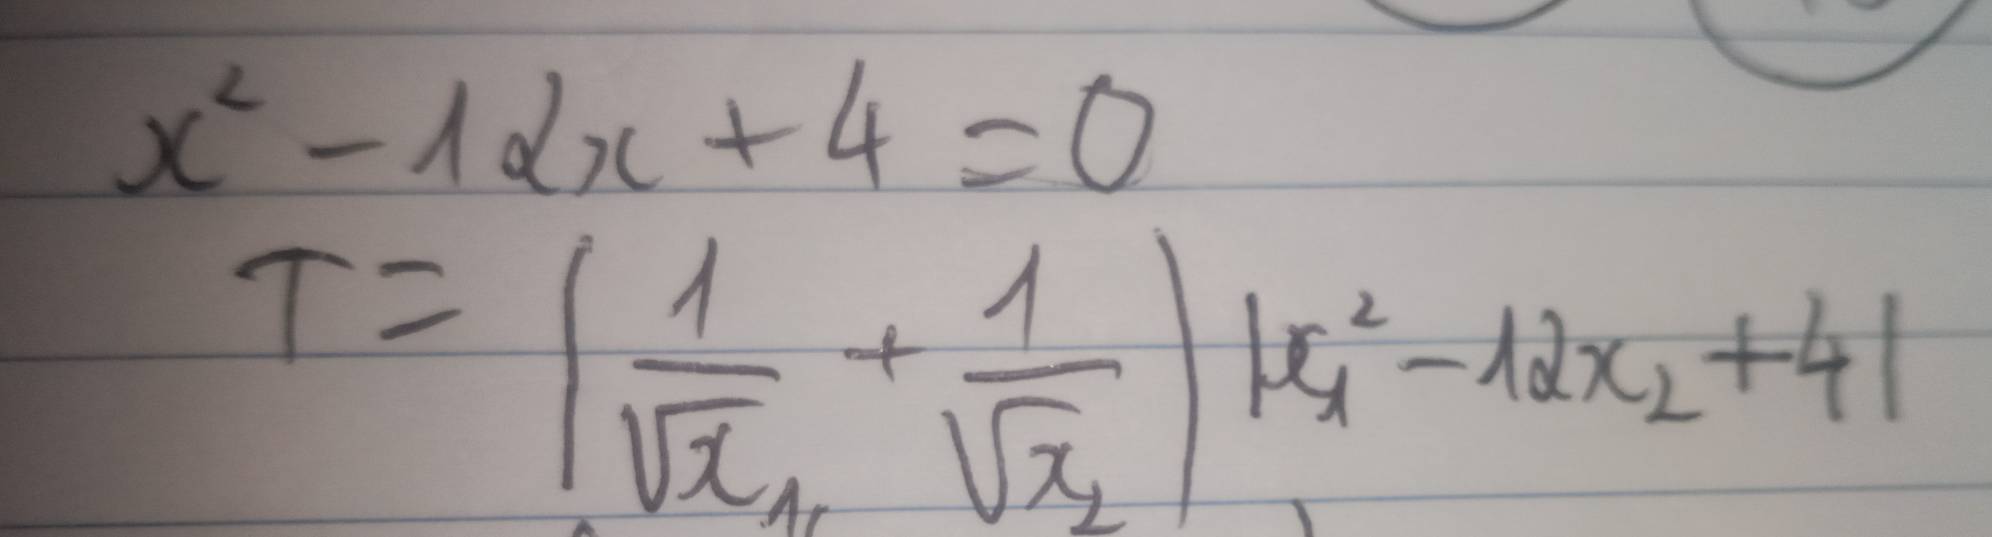 x² - 12x + 4 = 0
T = (1/√x₁ + 1/√x₂) |x₁² - 12x₂ + 4|